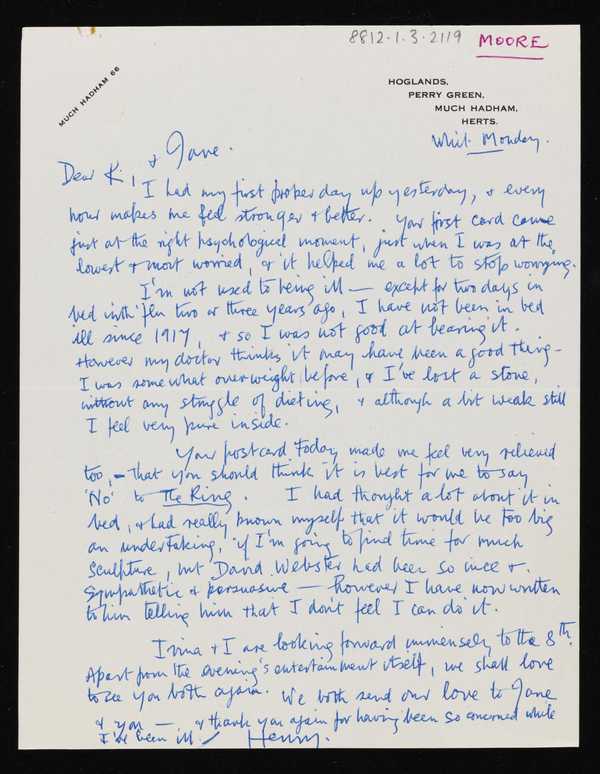 8812.1.3.2119 MOORE
MUCH HADHAM 66
HOGLANDS,
PERRY GREEN,
MUCH HADHAM,
HERTS.
Whit. Monday.
Dear K., & Jane.
I had my first proper day up yesterday, & every
hour makes me feel stronger & better. Your first card came
just at the right psychological moment, just when I was at the
lowest & most worried, & it helped me a lot to stop worrying.
I'm not used to being ill — except for two days in
bed with 'flu two or three years ago, I have not been in bed
ill since 1917, & so I was not good at bearing it.
However my doctor thinks it may have been a good thing –
I was somewhat overweight before, & I've lost a stone,
without any struggle of dieting, & although a bit weak still
I feel very pure inside.
Your postcard today made me feel very relieved
too, – that you should think it is best for me to say
'No' to The Ring. I had thought a lot about it in
bed, & had really known myself that it would be too big
an undertaking, if I'm going to find time for much
sculpture, but David Webster had been so nice &
sympathetic & persuasive — However I have now written
to him telling him that I don't feel I can do it.
Irina & I are looking forward immensely to the 8th.
Apart from the evening's entertainment itself, we shall love
to see you both again. We both send our love to Jane
& you — & thank you again for having been so concerned while
I've been ill. Henry.